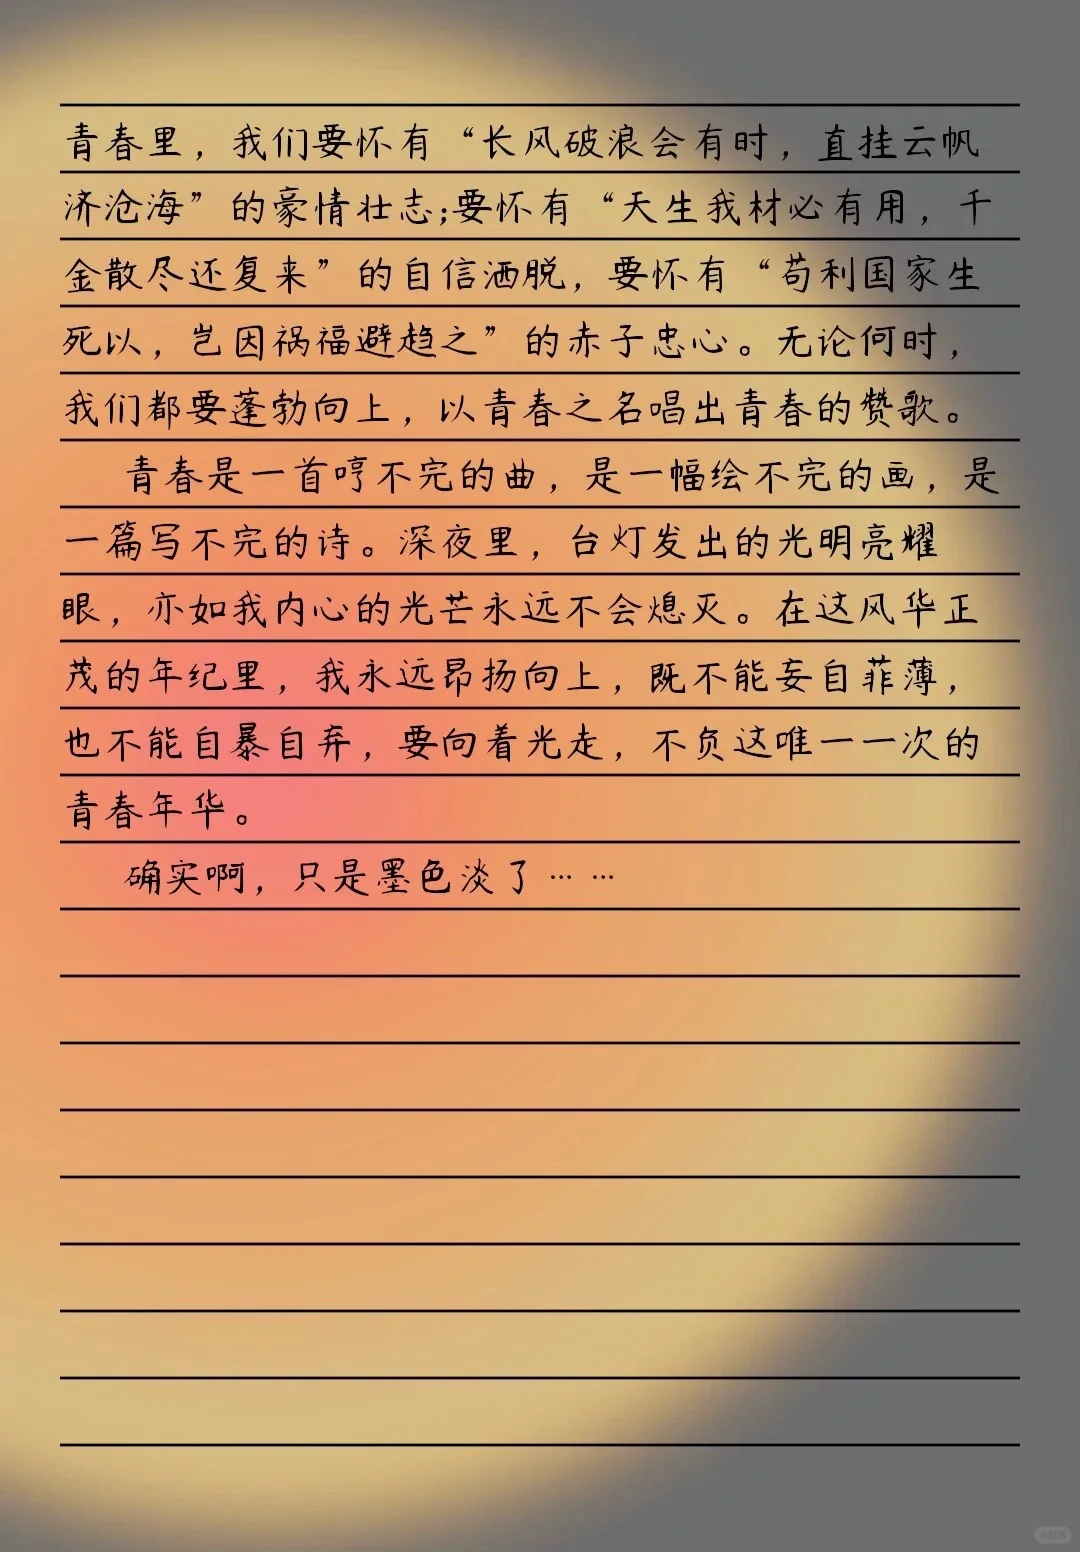 青春里，我们要怀有“长风破浪会有时，直挂云帆
济沧海”的豪情壮志;要怀有“天生我材必有用，千
金散尽还复来”的自信洒脱，要怀有“苟利国家生
死以，岂因祸福避趋之”的赤子忠心。无论何时，
我们都要蓬勃向上，以青春之名唱出青春的赞歌。
青春是一首哼不完的曲，是一幅绘不完的画，是
一篇写不完的诗。深夜里，台灯发出的光明亮耀
眼，亦如我内心的光芒永远不会熄灭。在这风华正
茂的年纪里，我永远昂扬向上，既不能妄自菲薄，
也不能自暴自弃，要向着光走，不负这唯一一次的
青春年华。
确实啊，只是墨色淡了… …